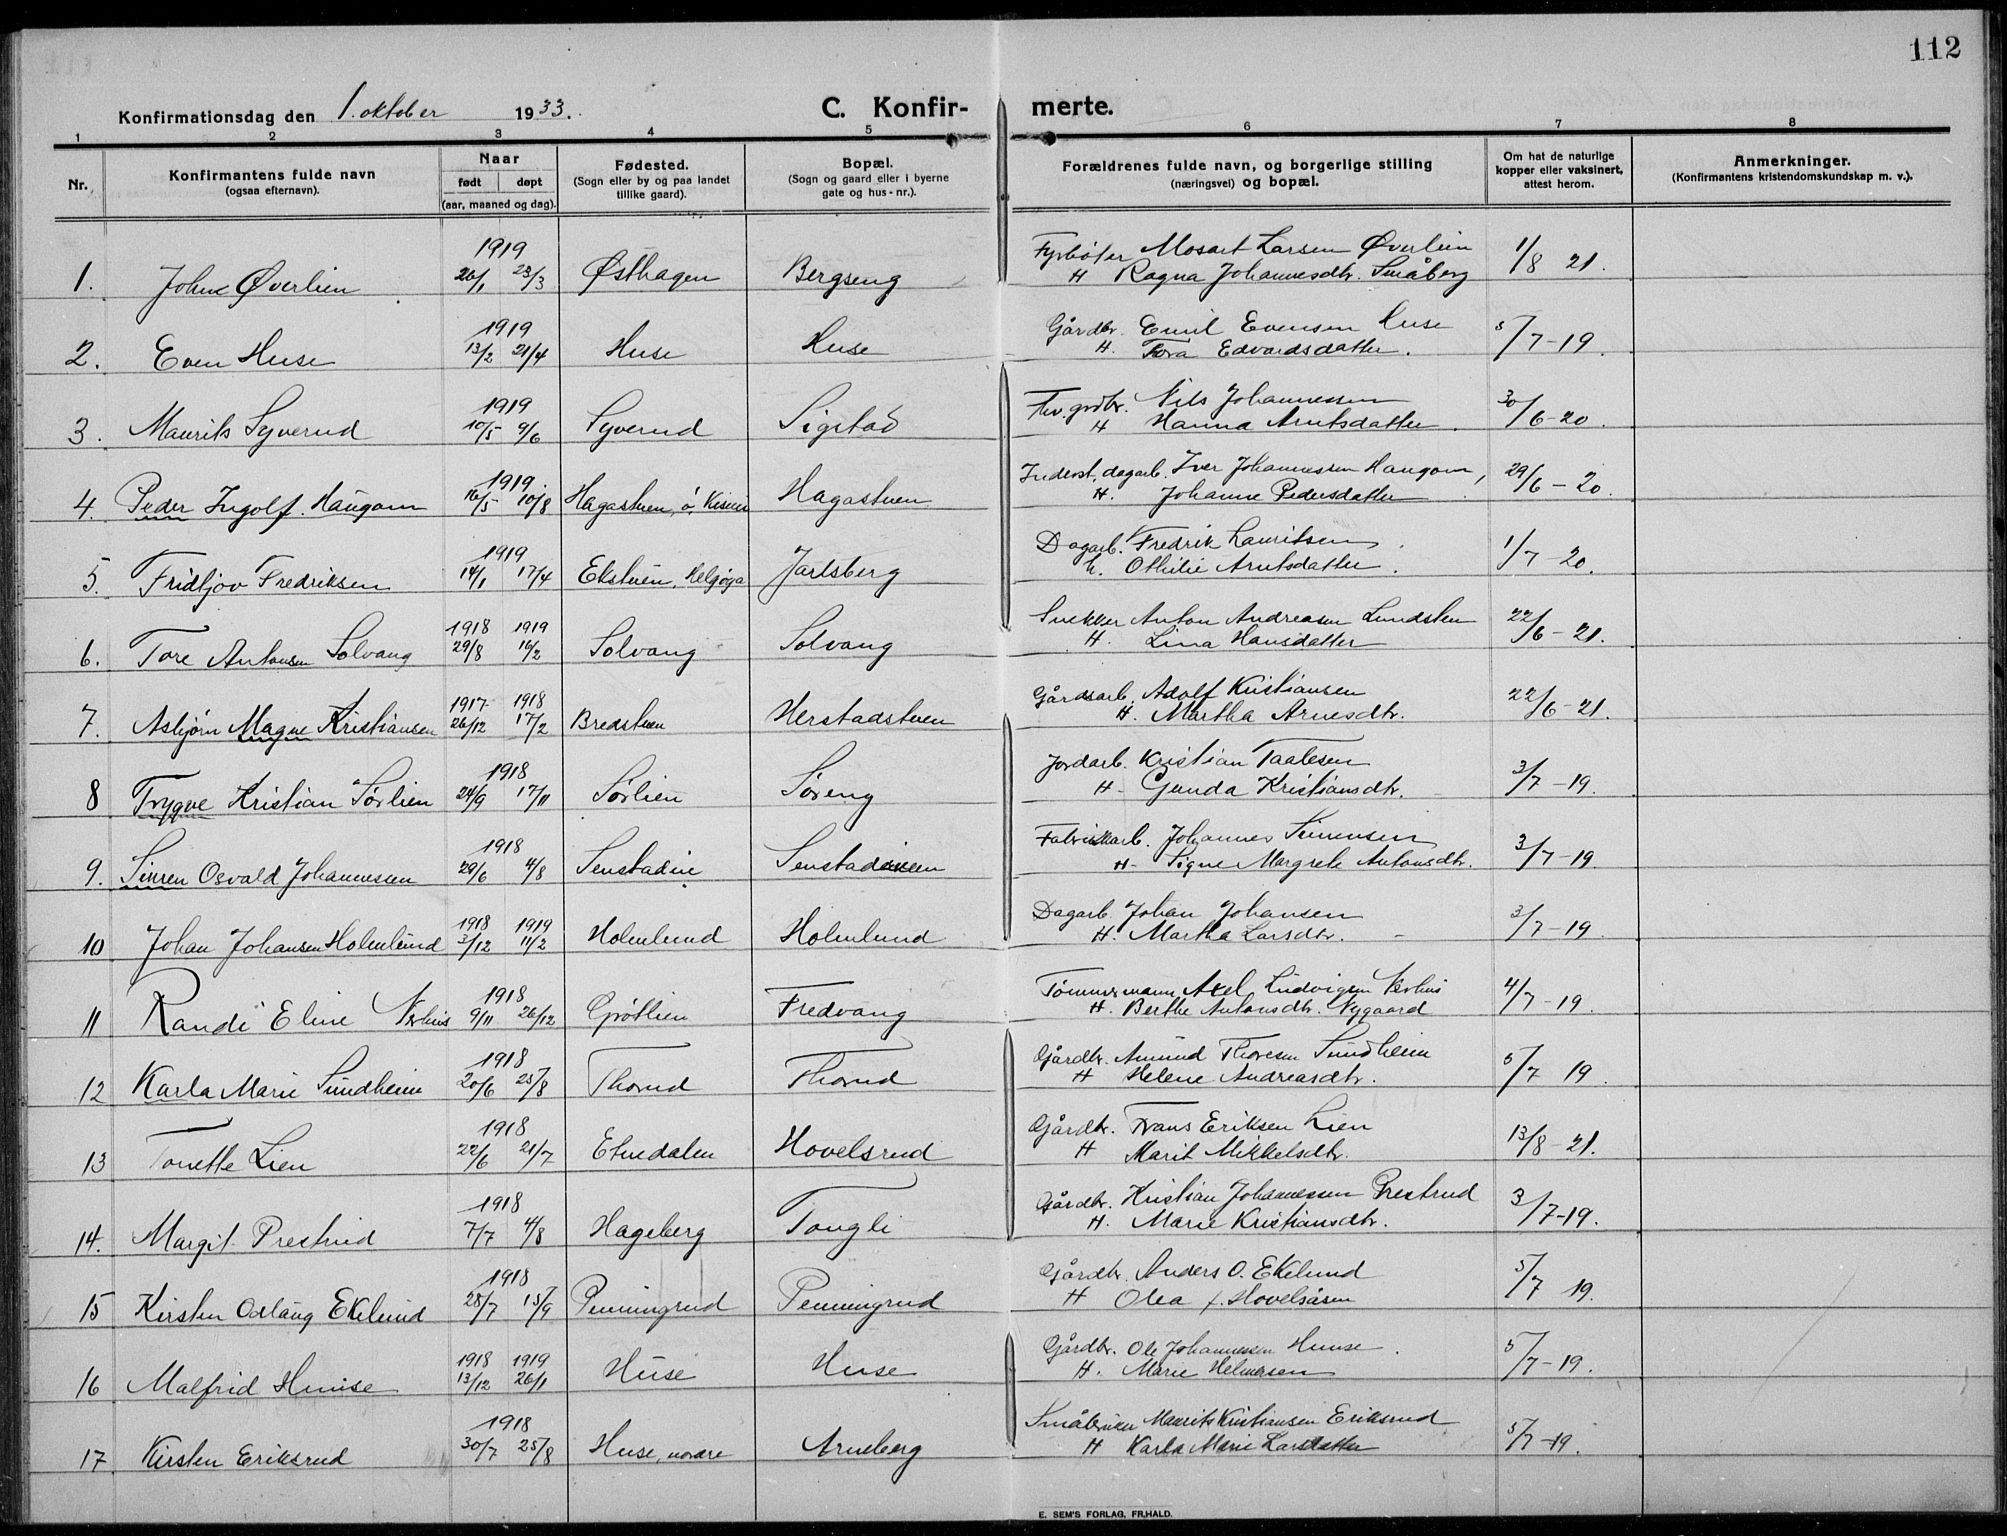 112
Konfirmationsdag den 1. oktober 1933.
C. Konfirmerte.
1 2 3 4 5 6 7 8
Nr. Konfirmantens fulde navn (ogsaa efternavn). Naar født døpt (aar, maaned og dag). Fødested. (Sogn eller by og paa landet tillike gaard). Bopæl. (Sogn og gaard eller i byerne gate og hus-nr.). Forældrenes fulde navn, og borgerlige stilling (næringsvei) og bopæl. Om hat de naturlige kopper eller vaksinert, attest herom. Anmerkninger. (Konfirmantens kristendomskundskap m. v.).
1919 Fyrbøter Mosart Larsen Øverlien
1. John Øverlien 26/1 23/3 Østhagen Bergseng H Ragna Johannesdtr. Småberg 1/8 21.
1919 Gårdbr. Emil Evensen Huse
2. Even Huse 13/2 21/4 Huse Huse H. Tora Edvardsdatter. 5/7-19.
1919 Fhv. grdbr. Nils Johannessen
3. Maurits Syverud 10/5 9/6 Syverud Sigstad H Hanna Arntsdatter. 30/6-20.
1919 Inderst, dagarb. Iver Johannessen Haugom,
4. Peder Ingolf Haugom 16/5 10/8 Hagastuen, ö. Hagastuen H. Johanne Pedersdatter 29/6-20.
1919 Dagarb. Fredrik Lauritsen.
5. Fridtjov Fredriksen 14/1 17/4 Ekstuen, Helgøya Jarlsberg h. Othilie Arntsdatter. 1/7-20.
1918 1919 Snekker Anton Andreasen Lundsten
6. Tore Antonsen Solvang 29/8 16/2 Solvang Solvang H. Lina Hansdatter 22/6-21.
1917 1918 Gårdsarb. Adolf Kristiansen
7. Asbjørn Magne Kristiansen 26/12 17/2 Bredstuen Herstadstuen H. Martha Arnesdtr. 22/6-21.
1918 Jordarb. Kristian Taalesen
8 Trygve Kristian Sørlien 24/9 17/11 Sørlien Søreng H- Gunda Kristiansdtr. 3/7-19.
1918 Fabrikkarb. Johannes Simensen
9. Simen Osvald Johannessen 29/6 4/8 Senstadeie H- Signe Margrete Antonsdtr. 3/7-19.
1918 1919 Dagarb. Johan Johansen
10 Johan Johansen Holmlund 3/12 11/2 Holmlund Holmlund H. Martha Larsdtr. 3/7-19.
1918 Tømmermann Axel Ludvigsen
11 Randi Eline 9/11 26/12 Grøtlien Fredvang H. Berthe Antonsdtr. Nygaard 4/7-19.
1918 Gårdbr. Amund Thoresen Sundheim
12 Karla Marie Sundheim 20/6 25/8 Thorud Thorud H Helene Andreasdtr. 5/7 19.
1918 Gårdbr. Frans Eriksen Lien
13 Tonette Lien 22/6 21/7 Etnedalen Hovelsrud H Marit Mikkelsdtr. 13/8-21.
1918 Gårdbr. Kristian Johannessen Prestrud
14. Margit Prestrud 7/7 4/8 Hageberg Tongli H. Marie Kristiansdtr. 3/7-19.
1918 Gårdbr. Anders O. Ekelund
15 Kirsten Oslaug Ekelund 28/7 15/9 Penningrud Penningrud H Olea f. Hovelsåsen 5/7 19.
1918 1919 Gårdbr. Ole Johannessen Hunse.
16 Malfrid Hunse 13/12 26/1 Huse Huse H. Marie Helmersen 5/7-19.
1918 Småbruker Maurits Kristiansen Eriksrud
17 Kirsten Eriksrud 30/7 25/8 Huse, nordre Arneberg H Karla Marie Larsdatter 5/7-19.
E. SEM'S FORLAG, FR.HALD.